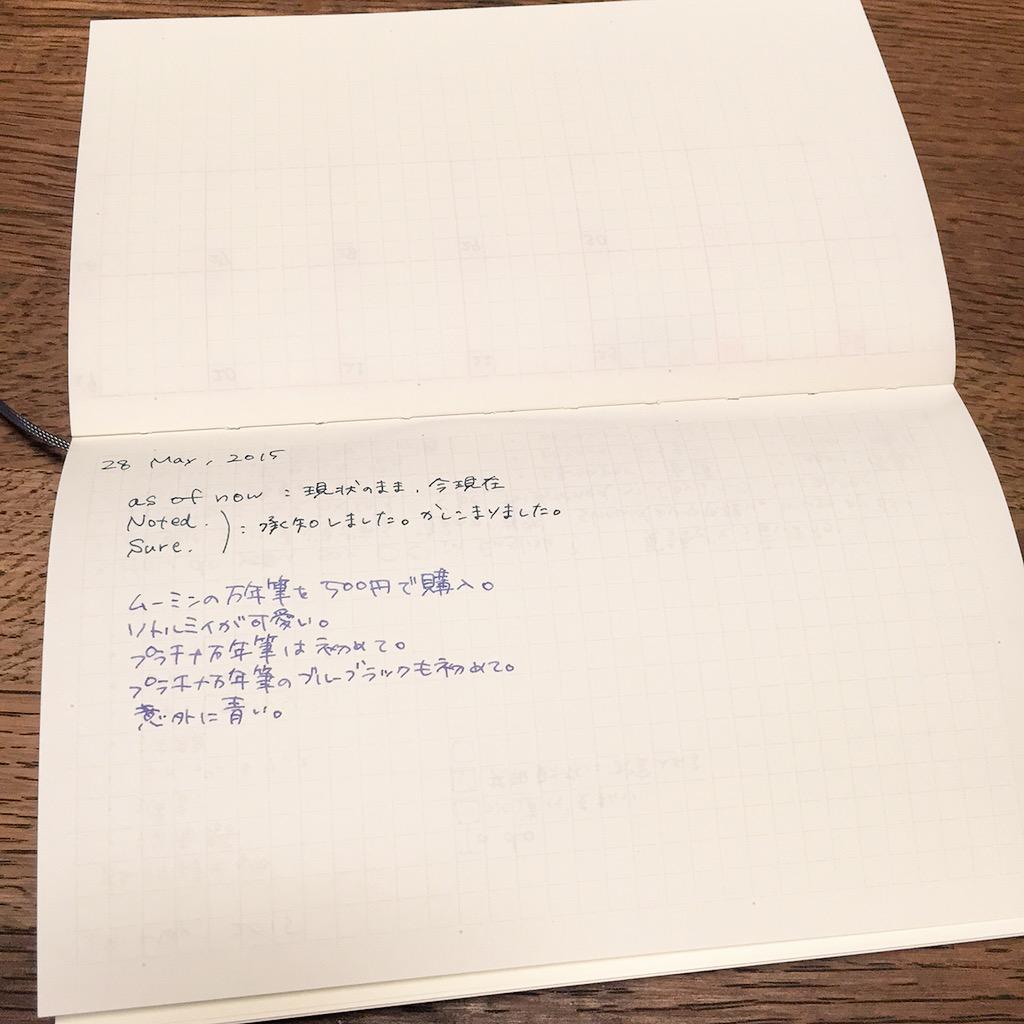 28 May, 2015
as of now : 現状のまま、今現在
Noted. ) : 承知しました。かしこまりました。
Sure.
ムーミンの万年筆を500円で購入。
リトルミイが可愛い。
プラチナ万年筆は初めて。
プラチナ万年筆のブルーブラックも初めて。
意外に青い。